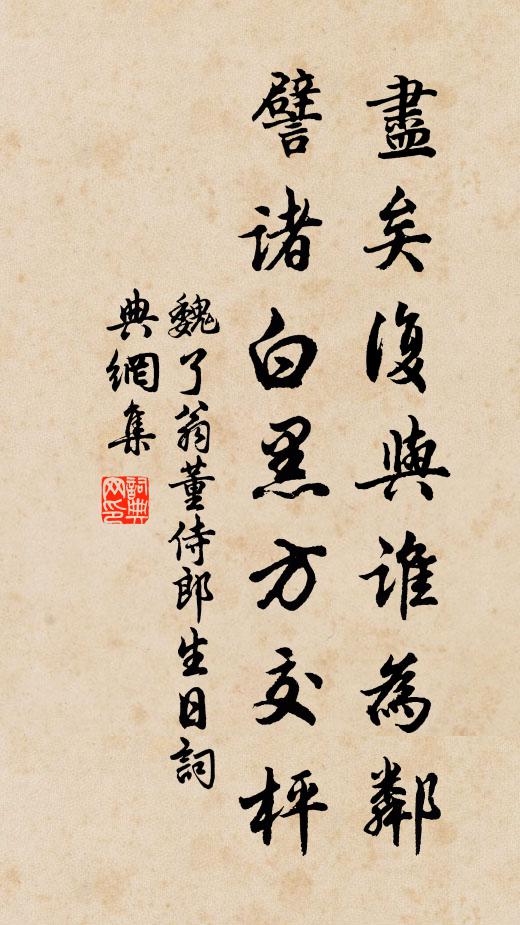 盡矣復與誰為鄰
譬諸白黑方交枰
魏了翁董侍郎生日詞
典網集
詞典網印